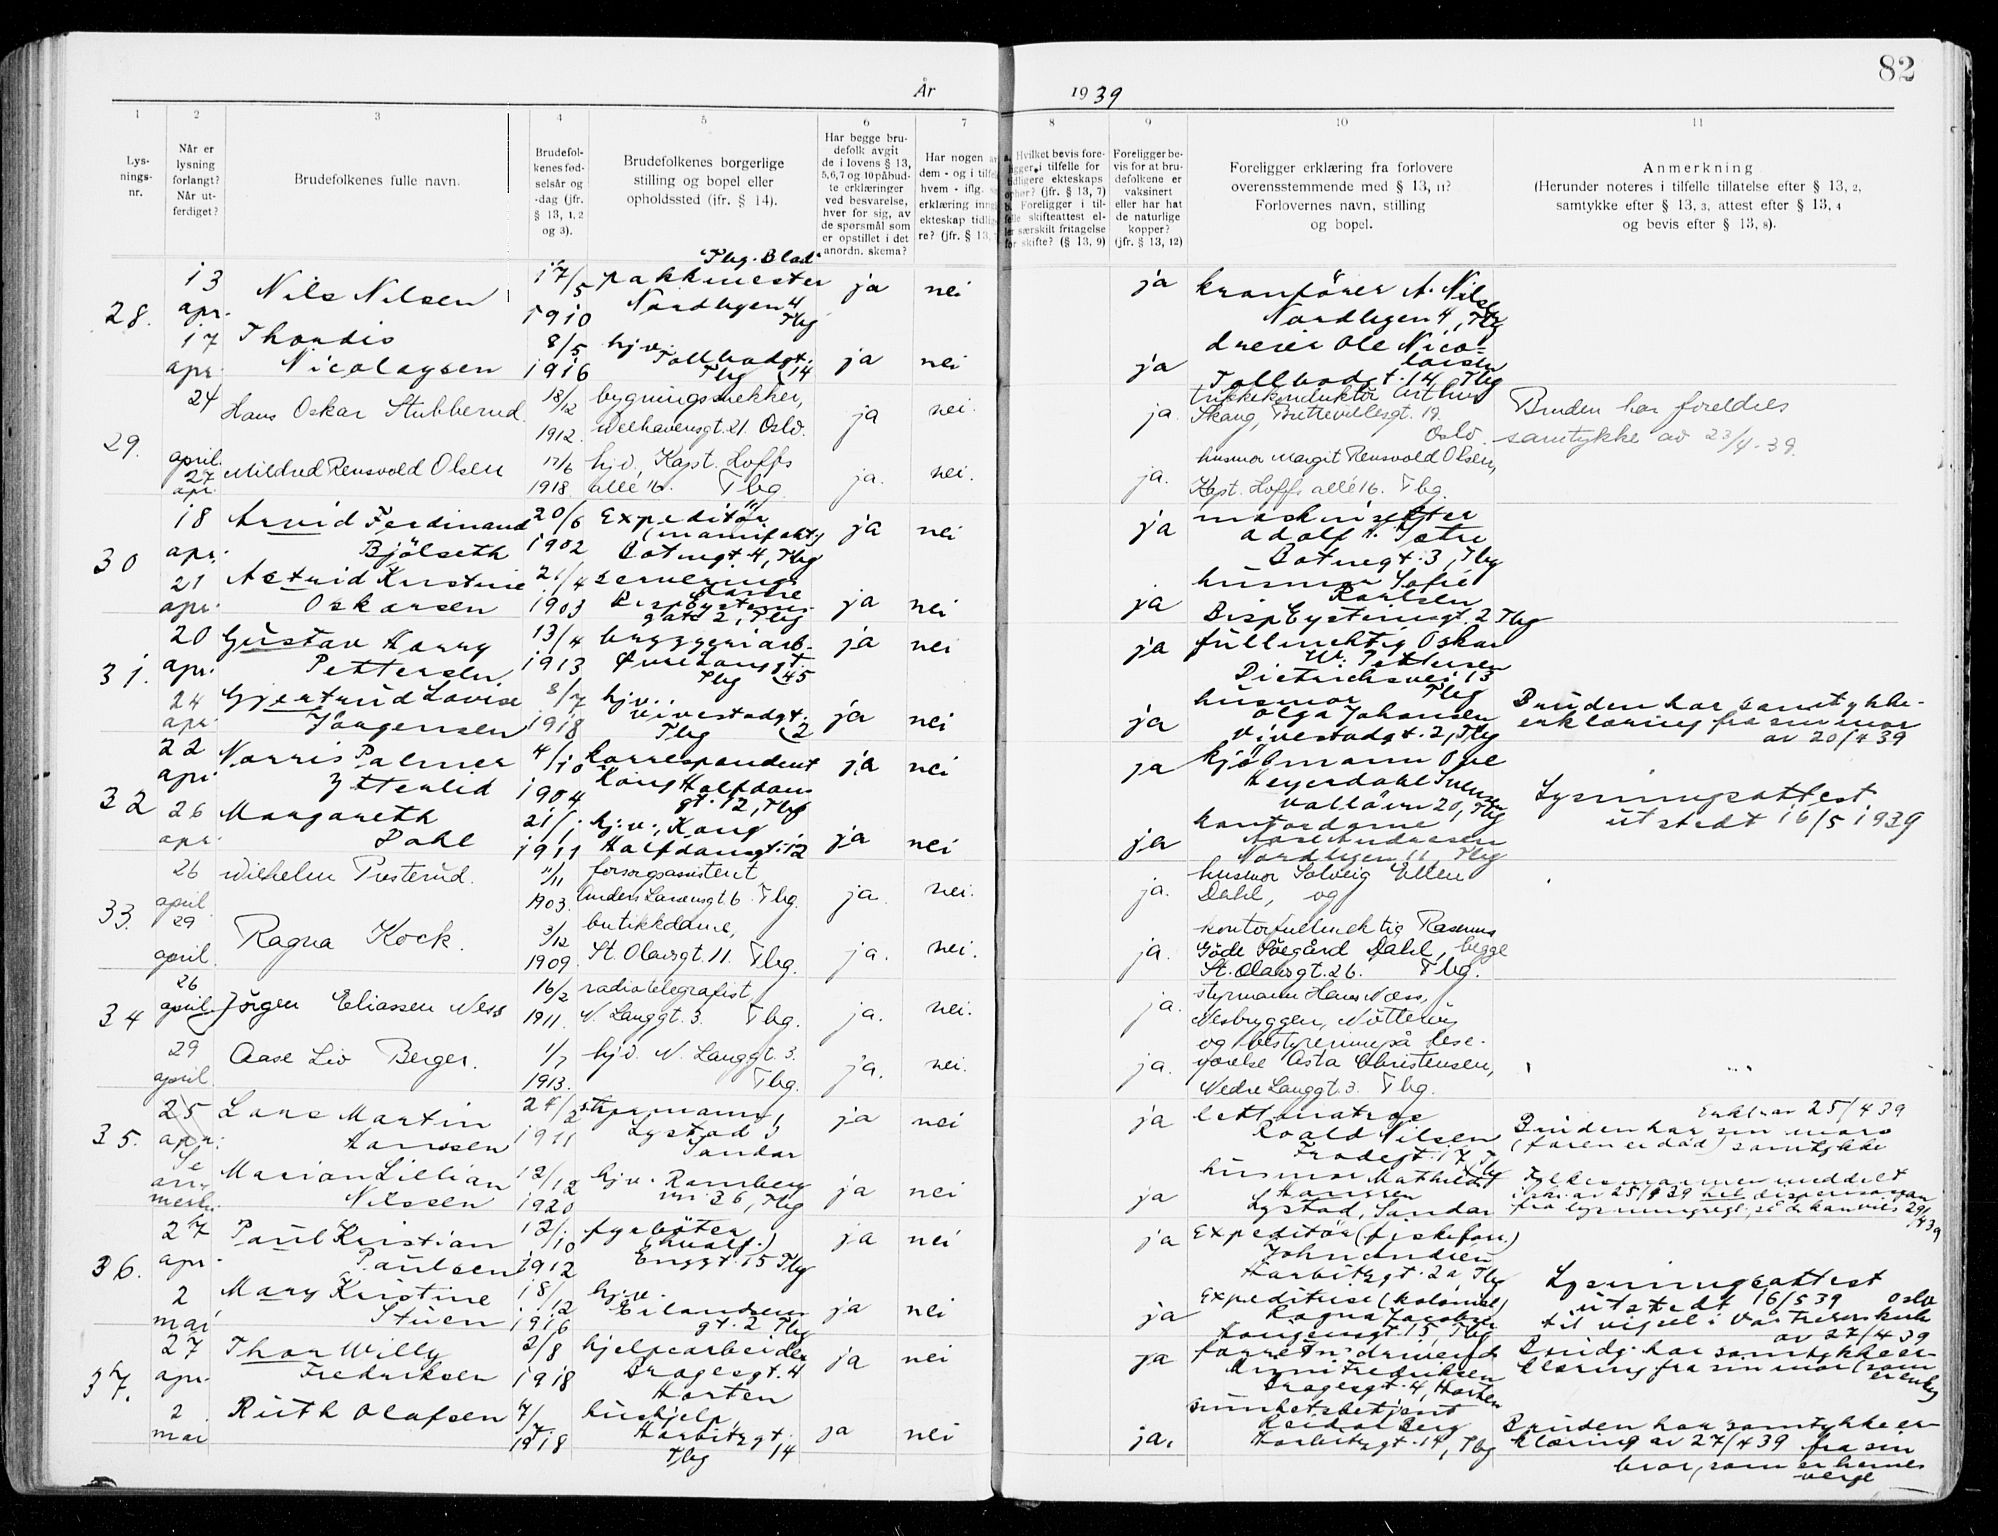 82
År 1939
1 2 3 4 5 6 7 8 9 10 11
Lys-
nings-
nr.
Når er
lysning
forlangt?
Når ut-
ferdiget?
Brudefolkenes fulle navn.
Brudefol-
kenes fød-
selsår og
-dag (jfr.
§ 13, 1, 2
og 3).
Brudefolkenes borgerlige
stilling og bopel eller
opholdssted (jfr. § 14).
Har begge bru-
defolk avgit
de i lovens § 13,
5,6,7 og 10 påbud-
te erklæringer
ved besvarelse,
hver for sig, av
de spørsmål som
er opstillet i det
anordn. skema?
Har nogen av
dem - og i tilfel
hvem - iflg.
erklæring inng
ekteskap tidlig
re? (jfr. § 13,
a. Hvilket bevis fore-
ligger, i tilfelle for
tidligere ekteskaps
ophør? (jfr. § 13, 7)
b. Foreligger i til-
felle skifteattest el-
ler særskilt fritagelse
for skifte? (§ 13, 9)
Foreligger be-
vis for at bru-
defolkene er
vaksinert
eller har hat
de naturlige
kopper?
(jfr. § 13, 12)
Foreligger erklæring fra forlovere
overensstemmende med § 13, 11?
Forlovernes navn, stilling
og bopel.
Anmerkning
(Herunder noteres i tilfelle tillatelse efter § 13, 2,
samtykke efter § 13, 3, attest efter § 13, 4
og bevis efter § 13, 8).
28.
13
apr.
Nils Nilsen
17/5
1910
"Tbg. Blad"
pakkmester
Nordbyen 4
Tbg
ja nei
ja
kranfører A. Nilsen
Nordbyen 4, Tbg
17
apr.
Thordis
Nicolaysen
8/5
1916
hjv.
Tollbodgt.
Tbg 14
ja nei
ja
dreier Ole Nico-
laisen
Tollbodgt. 14 Tbg
29.
24
april.
Hans Oskar Stubberud.
18/12
1912.
bygningssnekker,
Welhavensgt. 21. Oslo.
ja nei.
ja.
trikkekonduktør Arthur
Skaug, Brettevillesgt. 19.
Oslo.
Bruden har foreldres
samtykke av 23/4-39.
27
apr.
Mildred Rensvold Olsen
17/6
1918.
hjv., Kapt. Hoffs
allé 16. Tbg.
ja. nei.
ja.
husmor Margit Rensvold Olsen,
Kapt. Hoffs allé 16. Tbg.
30
18
apr.
Arvid Ferdinand
Bjölseth
20/6
1902
Expeditör
(manufakt.)
Botnegt. 4, Tbg
ja nei
ja
Adolf
Botnegt. 3, Tbg
21
apr.
Astrid Kristine
Oskarsen
21/4
1903
serverings
dame
Bisp Eysteins
gate 2, Tbg
ja nei
ja
husmor Sofie
Karlsen
Bisp Eysteinsgt. 2 Tbg
31.
20
apr.
Gustav Harry
Pettersen
13/4
1913
bryggeriarb.
Øvre Langgt.
Tbg 45
ja nei
ja
fullmektig Oskar
W. Pettersen
Dietrichsvei 13
Tbg
24
apr.
Gjertrud Lovise
Jörgensen
8/7
1918
hjv.
Vivestadgt.
Tbg 2
ja nei
ja
husmor
Olga Johansen
Vivestadgt. 2, Tbg
Bruden har samtykke-
erklæring fra sin mor
av 20/4 39
32
22
apr.
Norris Palmer
Ytterlid
4/10
1904
korrespondent
Kong Halfdans
gt. 12, Tbg
ja nei
ja
kjöbmann Ove
Heyerdahl Svensen
Vallöven 20, Tbg
Lysningsattest
utstedt 16/5 1939
26
apr.
Margareth
Dahl
21/1
1911
hjv., Kong
Halfdansgt. 12
ja nei
ja
kontordame
Aase Andresen
Nordbyen 11, Tbg
33.
26
april.
Wilhelm Pusterud.
11/11
1903.
forsorgsassistent
Anders Larsensgt. 6. Tbg.
ja. nei.
ja.
husmor Solveig Ellen
Dahl, og
29
april.
Ragna Kock.
3/12
1909.
butikkdame,
St. Olavsgt. 11. Tbg.
ja. nei.
ja.
kontorfullmektig Rasmus
Göde Svegård Dahl, begge
St. Olavsgt. 26. Tbg.
34
26
april
Jörgen Eliassen Ness
16/2
1911.
radiotelegrafist
N. Langgt. 3. Tbg.
ja. nei.
ja.
styrmann Hans Næss,
Nesbryggen, Nötteröy
og bestyrerinne på lese-
29
april
Aase Liv Berger.
1/7
1913.
hjv. N. Langgt. 3.
Tbg.
ja. nei.
ja.
værelse Asta Christensen,
Nedre Langgt. 3. Tbg.
35.
25
apr.
Lars Martin
Hanssen
24/2
1911
styrmann,
Lystad,
Sandar
ja nei
ja
lettmatros
Roald Nilsen
Frodegt. 17 Tbg
Erkl. av 25/4 39
Bruden har sin mors
(faren er död) samtykke
Se
anmerkn.
Marian Lillian
Nilssen
12/12
1920
hjv. Ramberg
nr. 36, Tbg
ja nei
ja
husmor Mathilde
Hanssen
Lystad, Sandar
Fylkesmannen meddelt
i skr. av 25/4 39 hel dispensasjon
fra lysningsregl., så de kan vies 29/4 39
36.
27
apr.
Paul Kristian
Paulsen
12/10
1912
fyrböter
(hvalf.)
Enggt. 15 Tbg
ja nei
ja
Expeditör (fiskeforr.)
John Andersen
Harbitzgt. 2a, Tbg
Lysningsattest
utstedt 16/5 39
til vigsel i Vår Frelsers kirke
Oslo
2
mai
Mary Kristine
Stuen
18/12
1916
hjv.
Erlandsens
gt. 2 Tbg
ja nei
ja
Expeditrise (kolonial)
Ragna Jacobsen
15, Tbg
37.
27
apr.
Thor Willy
Fredriksen
2/8
1918
hjelpearbeider
Bragesgt. 4
Horten
ja nei
ja
forretn.drivende
Arni Fredriksen
Bragesgt. 4, Horten
av 27/4 39
Brudg. har samtykkeer-
klæring fra sin mor (som
er enke)
2
mai
Ruth Olafsen
4/7
1918
hushjelp,
Harbitzgt.
Tbg 14
ja nei
ja.
sunnhetsbetjent
Reidar Berg
Harbitzgt. 14, Tbg
Bruden har samtykkeer-
klæring av 27/4 39 fra sin
bror, som er hennes
verge